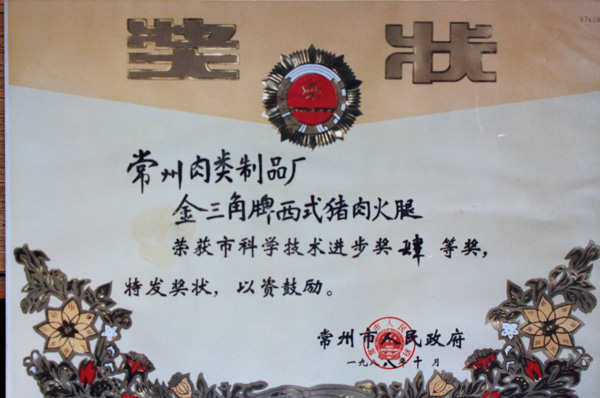 奖状
常州肉类制品厂
金三角牌西式猪肉火腿
荣获市科学技术进步奖肆等奖，
特发奖状，以资鼓励。
常州市人民政府
一九八八年十月